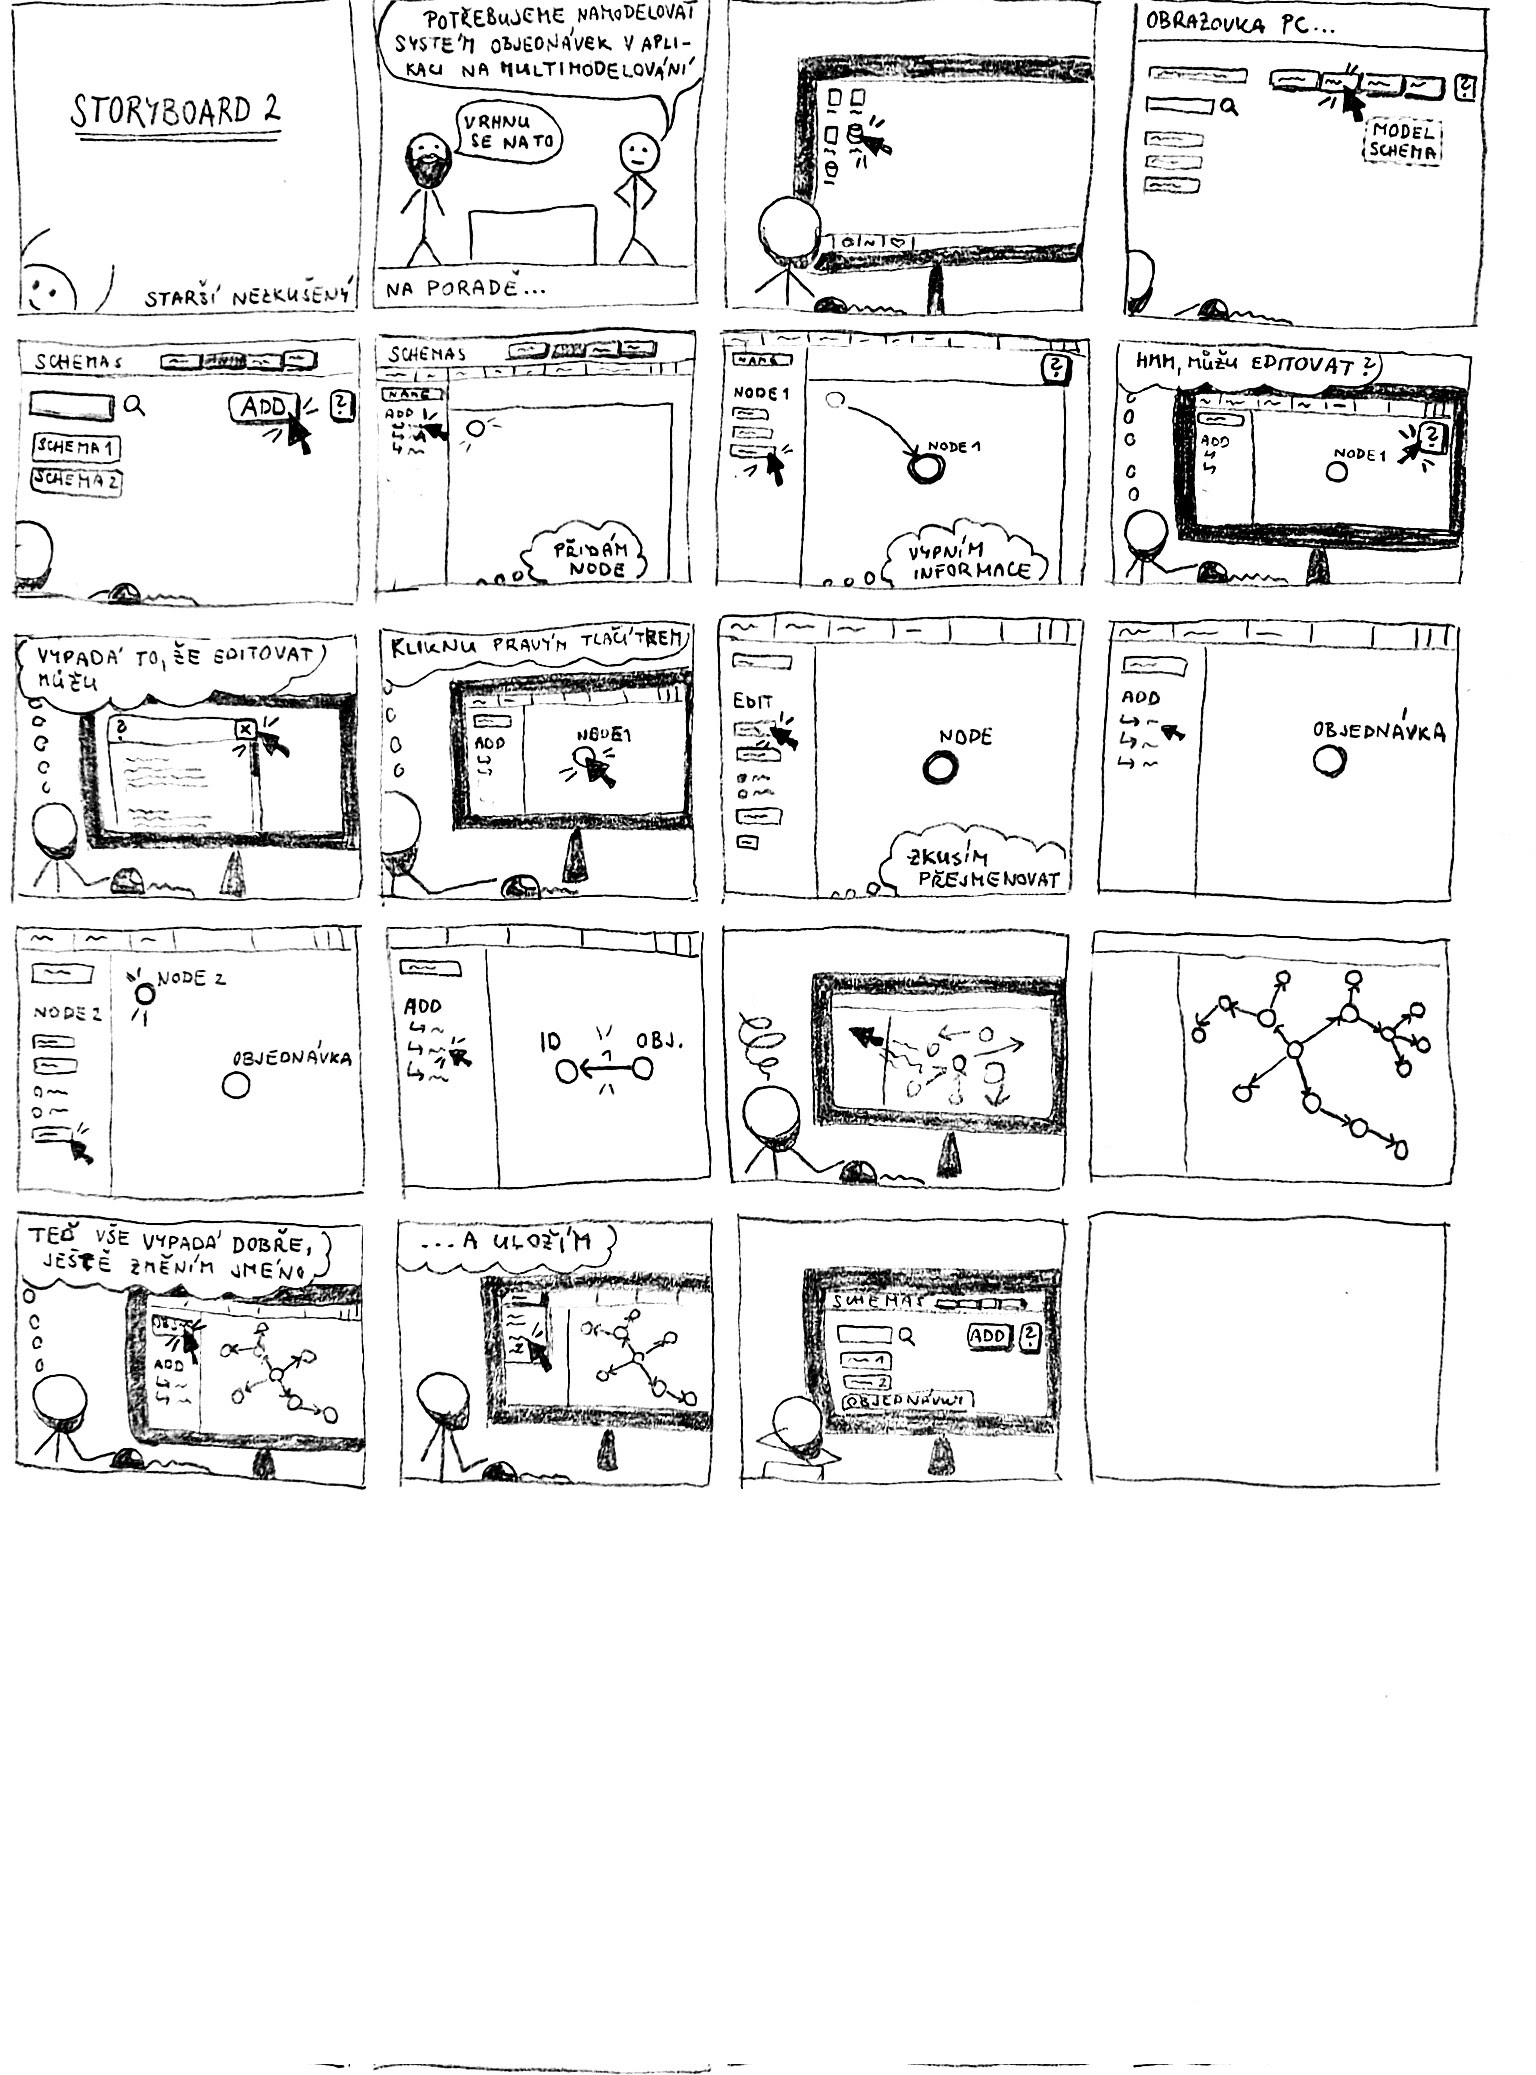 STORYBOARD 2
STARŠÍ NEZKUŠENÝ
POTŘEBUJEME NAMODELOVAT
SYSTÉM OBJEDNÁVEK V APLI-
KACI NA MULTIMODELOVÁNÍ
VRHNU
SE NA TO
NA PORADĚ...
OBRAZOVKA PC...
?
MODEL
SCHEMA
SCHEMAS
ADD
?
SCHEMA 1
SCHEMA 2
SCHEMAS
NAME
ADD
PŘIDÁM
NODE
NAME
?
NODE 1
NODE 1
VYPNÍM
INFORMACE
HMM, MŮŽU EDITOVAT?
?
ADD
NODE 1
VYPADÁ TO, ŽE EDITOVAT
MŮŽU
?
X
KLIKNU PRAVÝM TLAČÍTREM
NODE1
ADD
EDIT
NODE
ZKUSÍM
PŘEJMENOVAT
ADD
OBJEDNÁVKA
NODE 2
NODE 2
OBJEDNÁVKA
ADD
ID
1
OBJ.
TEĎ VŠE VYPADÁ DOBŘE,
JEŠTĚ ZMĚNÍM JMÉNO
OBJ
ADD
...A ULOŽÍM
SCHEMAS
ADD
?
1
2
OBJEDNÁVKY